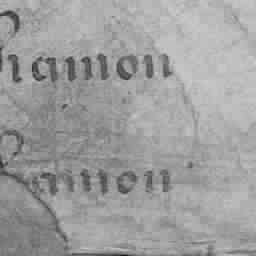 hamon
hamon